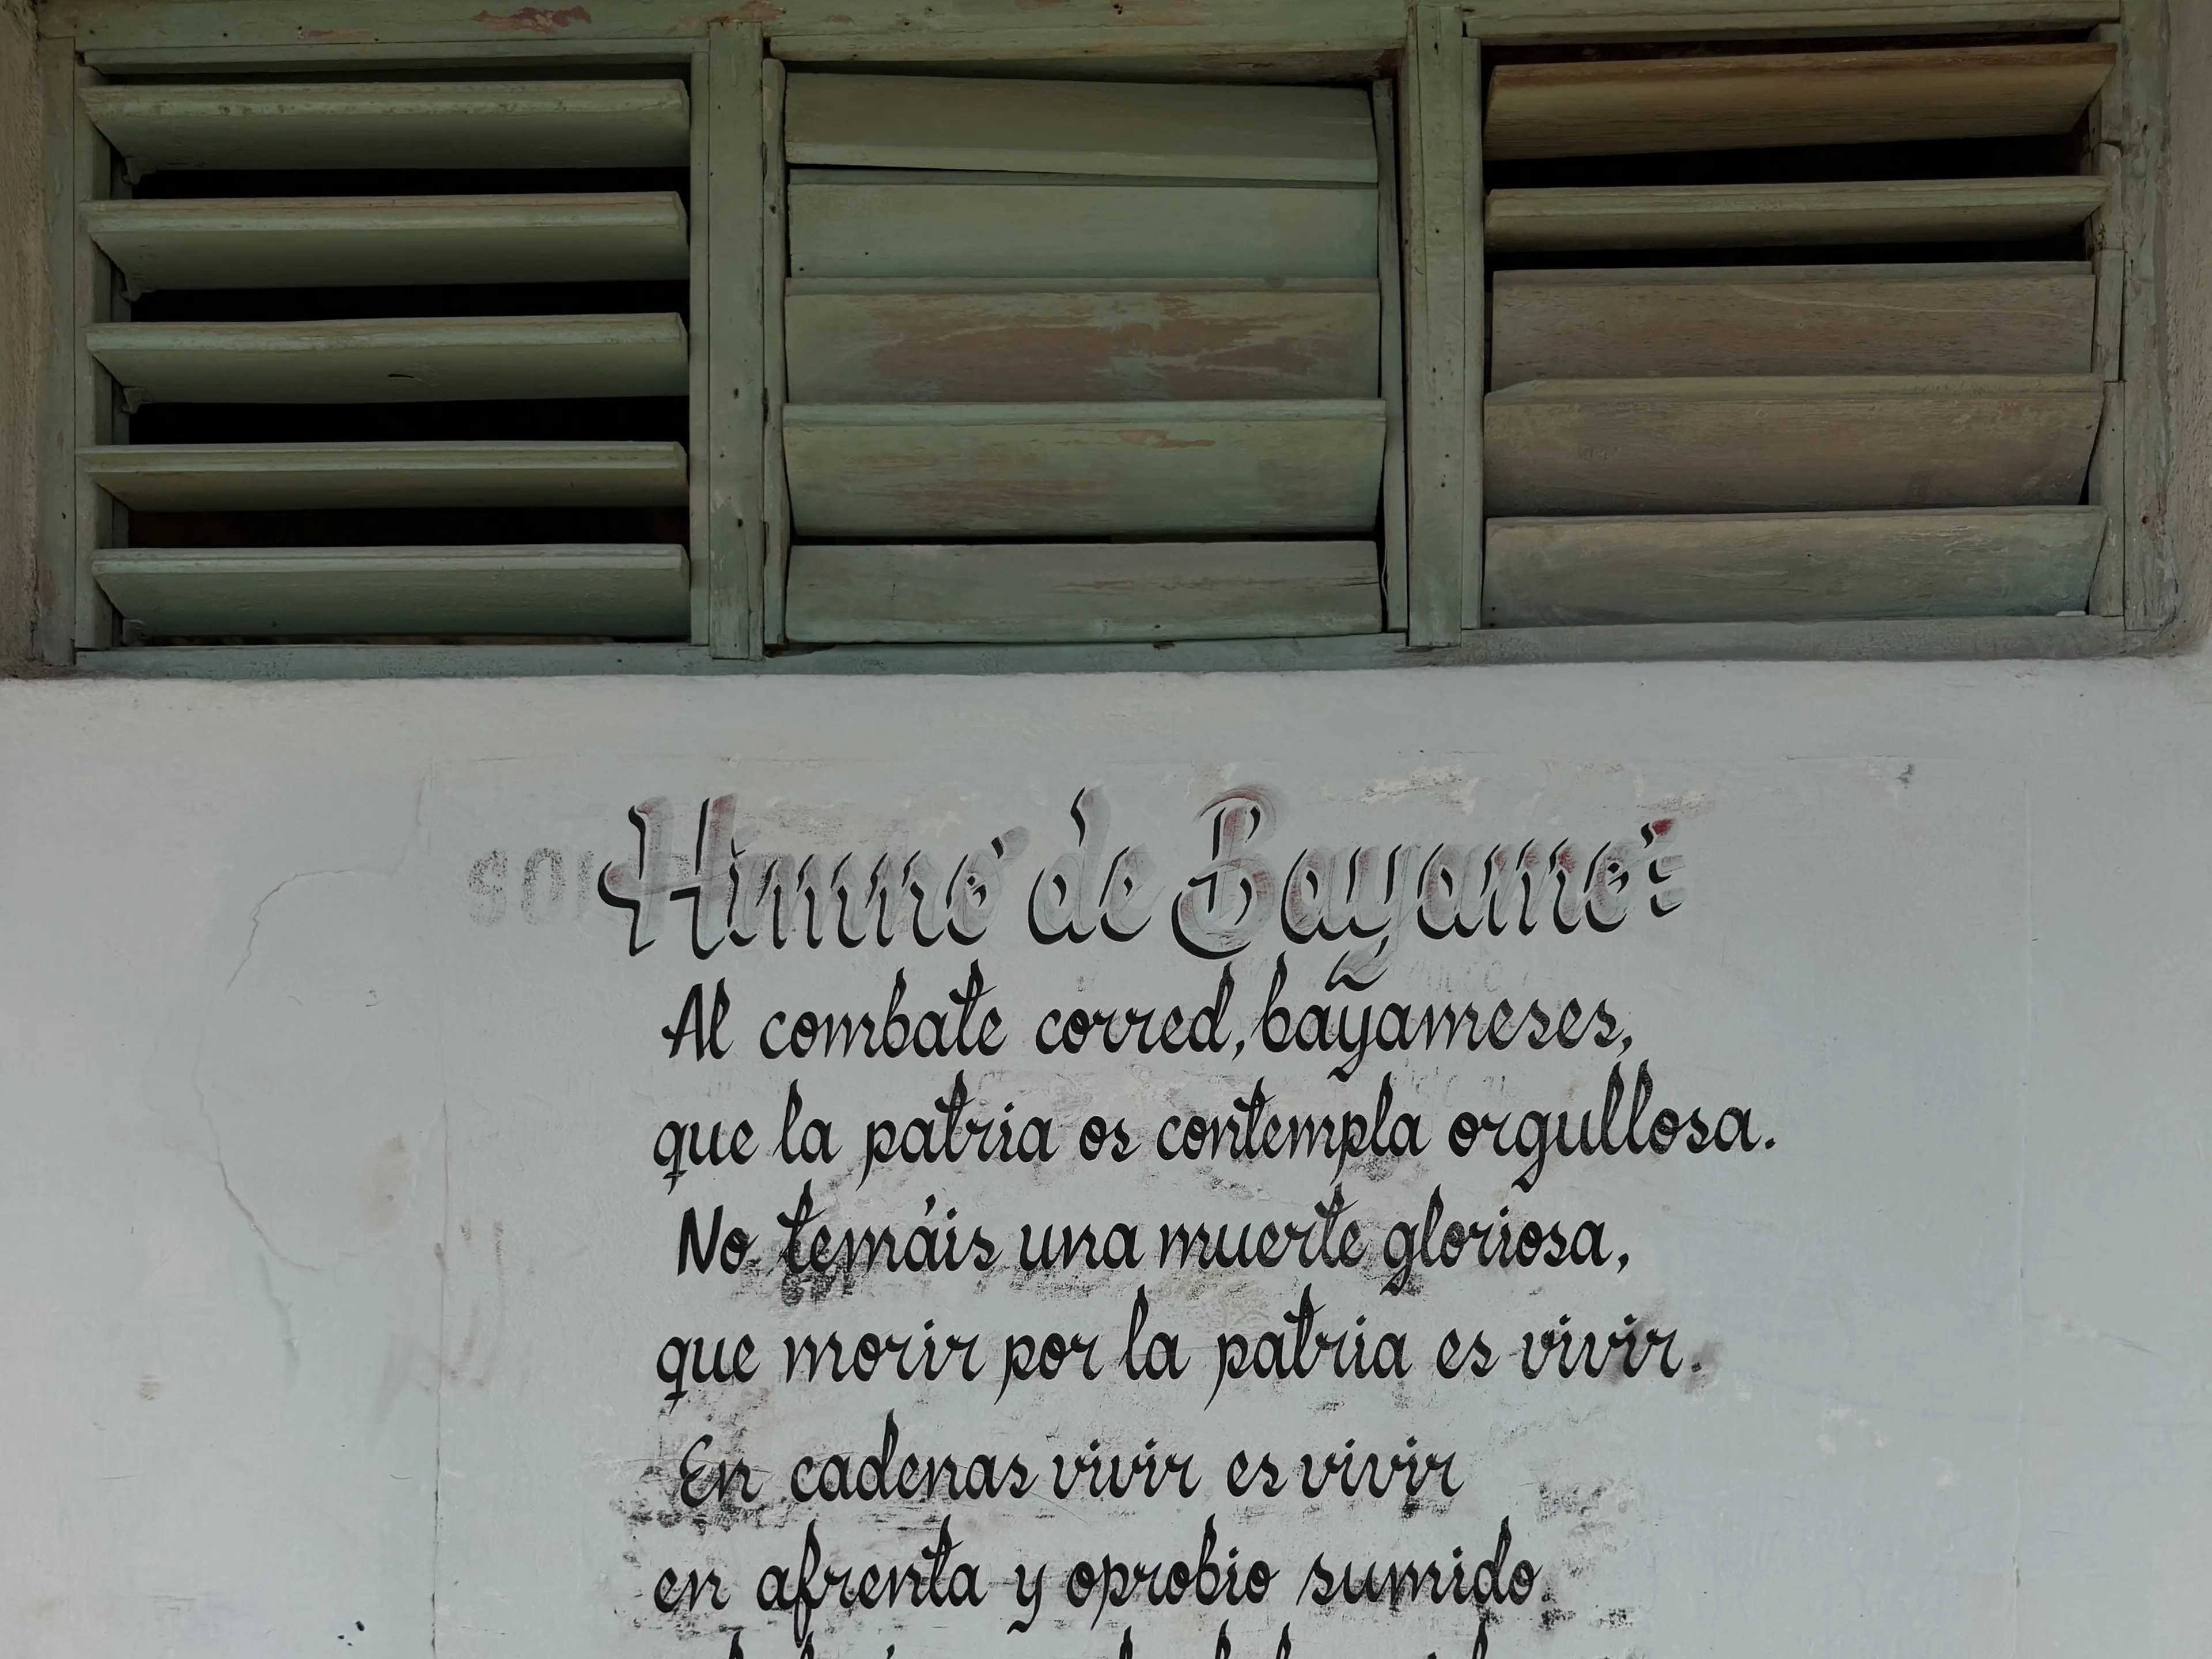 Himno de Bayamo:
Al combate corred, bayameses,
que la patria os contempla orgullosa.
No temáis una muerte gloriosa,
que morir por la patria es vivir.
En cadenas vivir es vivir
en afrenta y oprobio sumido.